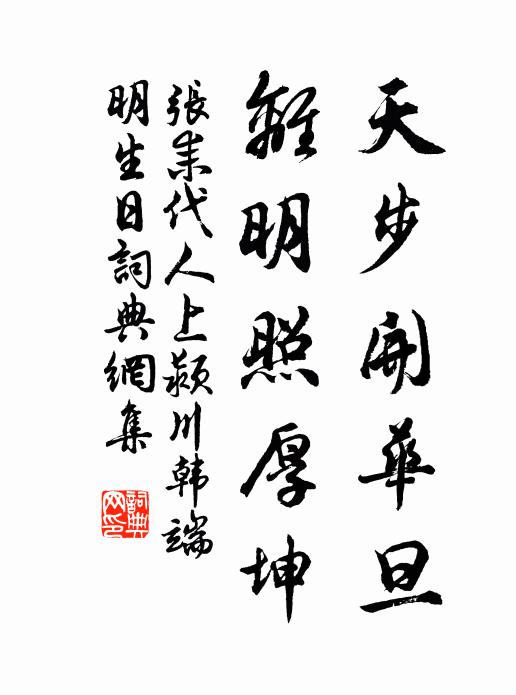 天步開華旦
離明照厚坤
張耒代人上潁川韩端
明生日詞典網集
詞典網印